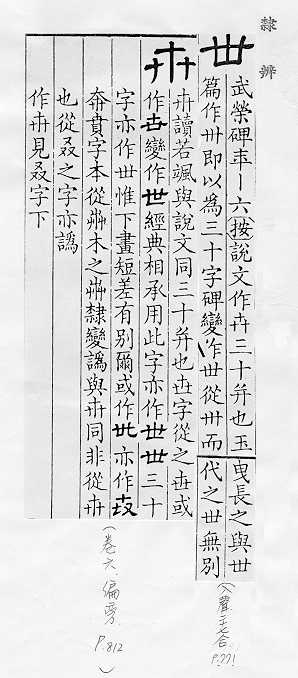 隸辨
丗
武榮碑年丨六(按)說文作卉三十并也玉
篇作丗即以為三十字碑變作世從丗而
曳長之與世
代之丗無別
(入聲二十七合 P.771)
卉
卉讀若颯與說文同三十并也世字從之卋或
作卋變作世經典相承用此字亦作世世三十
字亦作世惟下畫短差有別爾或作丗亦作
奔賁字本從芔木之芔隸變譌與卉同非從卉
也從叒之字亦譌
作卉見叒字下
(卷六、偏旁 P.812)